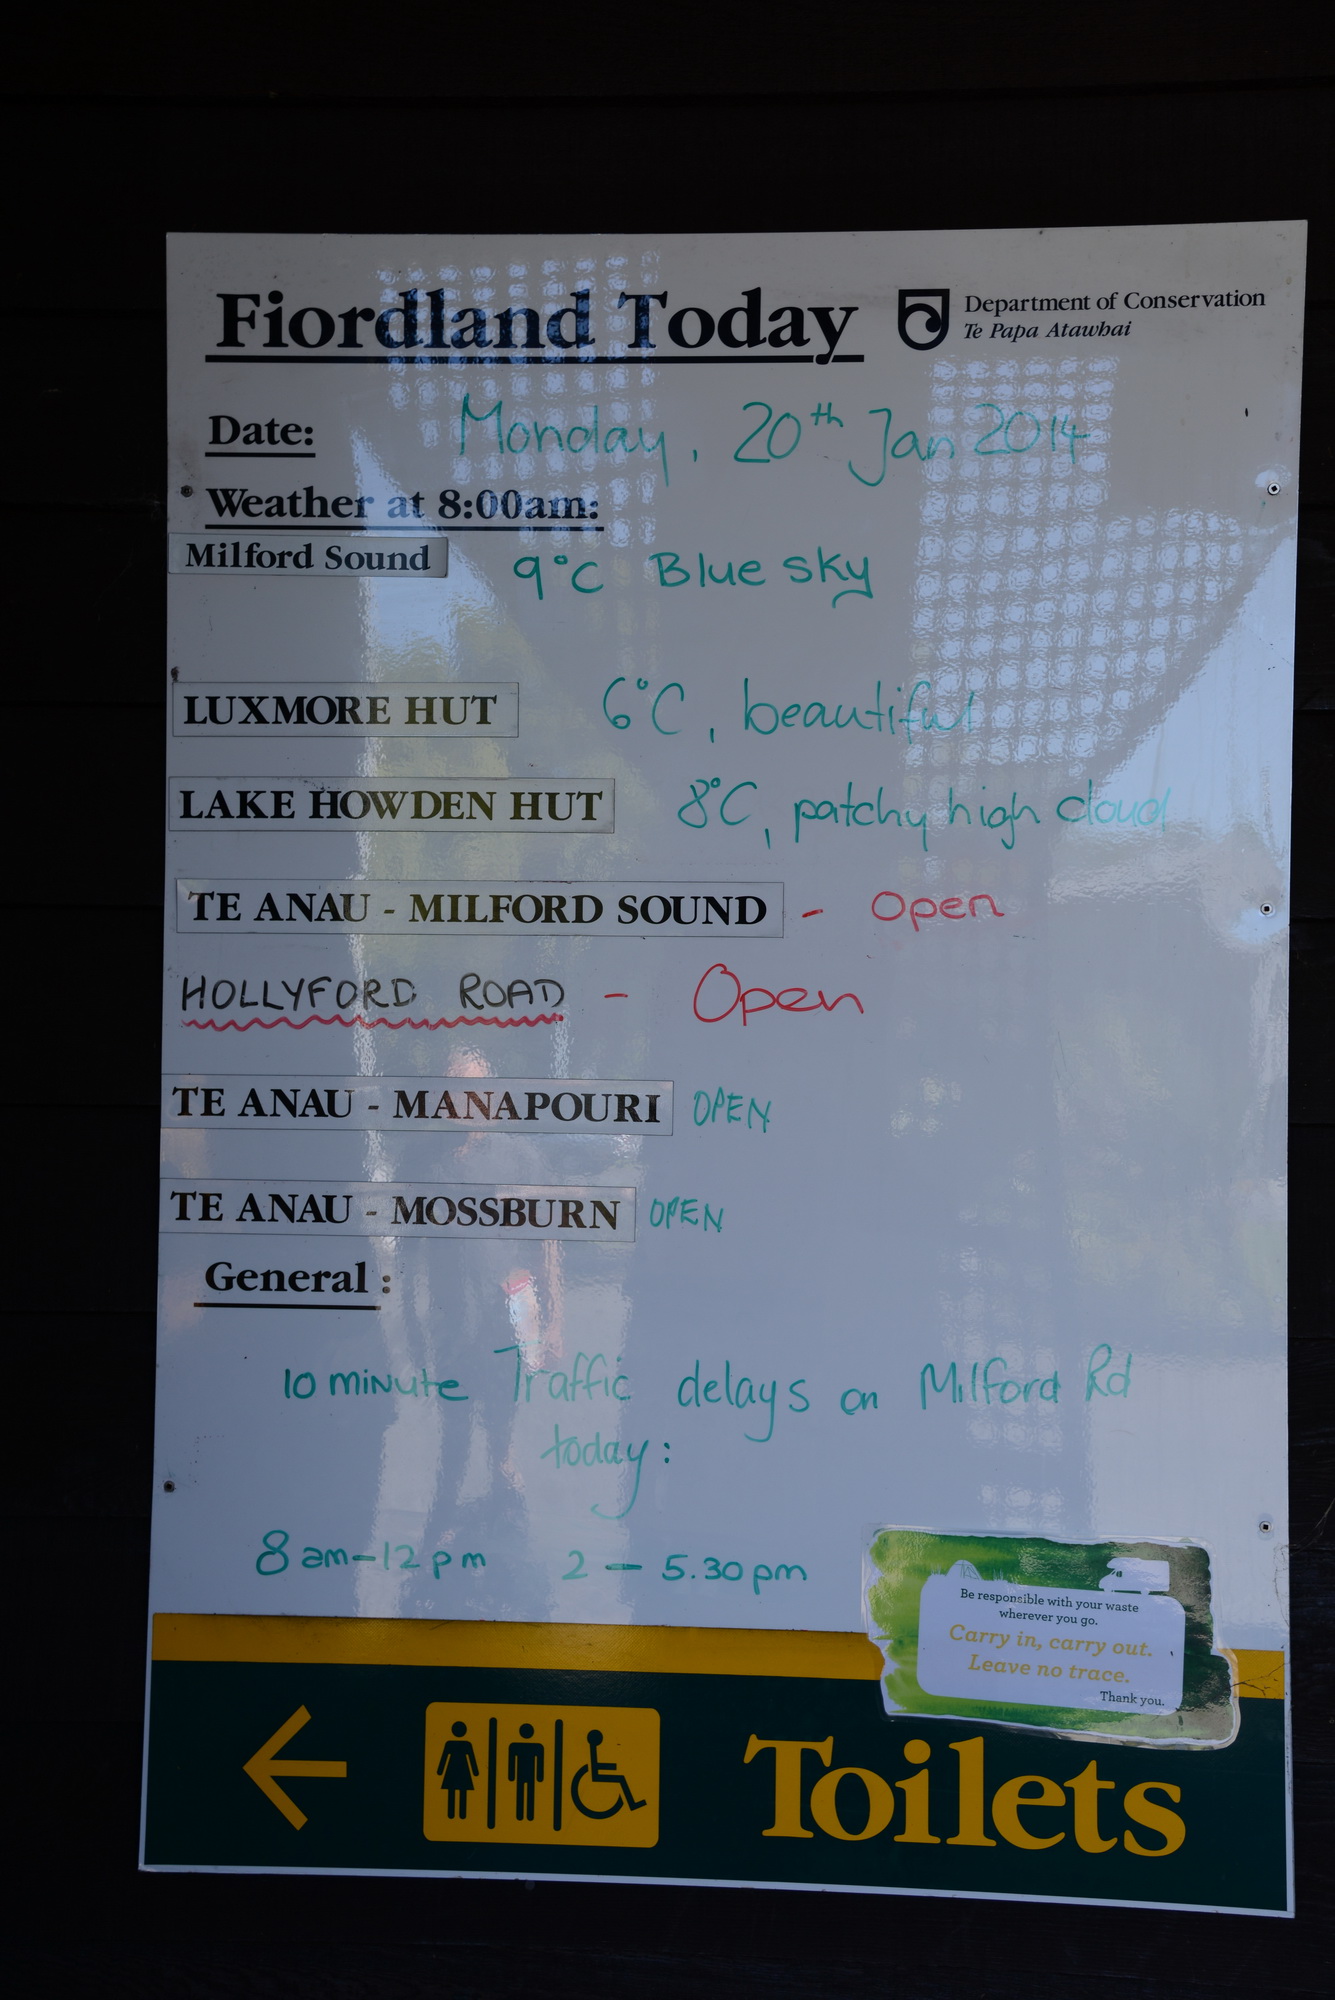 Fiordland Today
Department of Conservation
Te Papa Atawhai
Date: Monday, 20th Jan 2014
Weather at 8:00am:
Milford Sound 9°C Blue sky
LUXMORE HUT 6°C, beautiful
LAKE HOWDEN HUT 8°C, patchy high cloud
TE ANAU - MILFORD SOUND - Open
HOLLYFORD ROAD - Open
TE ANAU - MANAPOURI OPEN
TE ANAU - MOSSBURN OPEN
General:
10 minute Traffic delays on Milford Rd
today:
8am-12pm 2 - 5.30pm
Be responsible with your waste
wherever you go.
Carry in, carry out.
Leave no trace.
Thank you.
Toilets